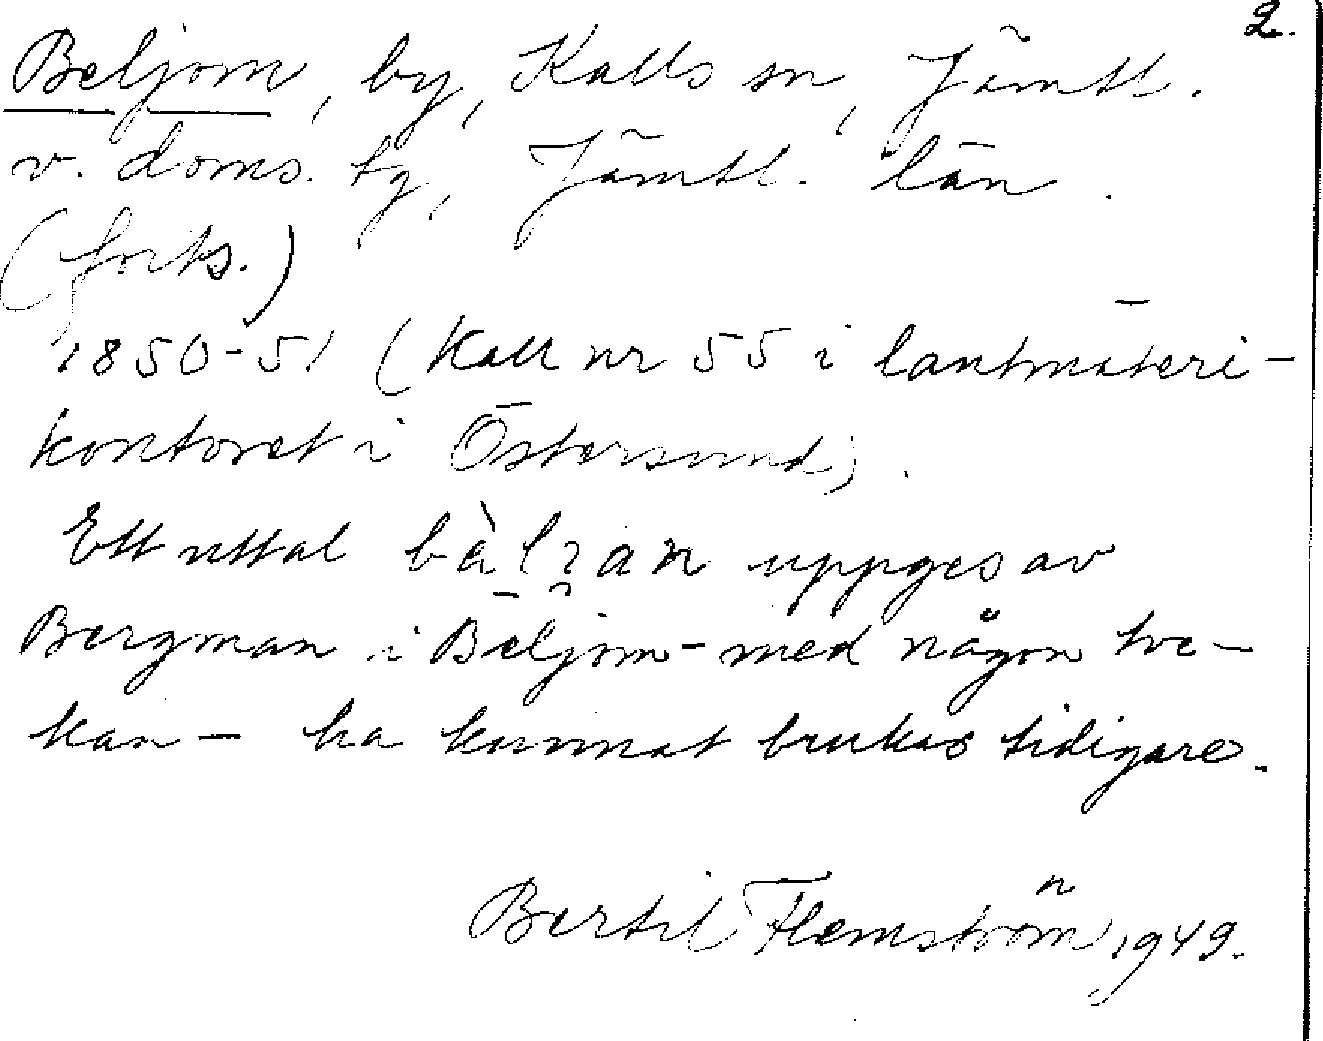 2.
Beljom, by, Kalls sn, Jämtl.
v. doms. tg, Jämtl. län.
(forts.)
1850-51 (Kall nr 55 i lantmäteri-
kontoret i Östersund).
Ett uttal uppges av
Bergman i Beljom - med någon tve-
kan - ha kunnat brukas tidigare.
Bertil Flemström 1949.